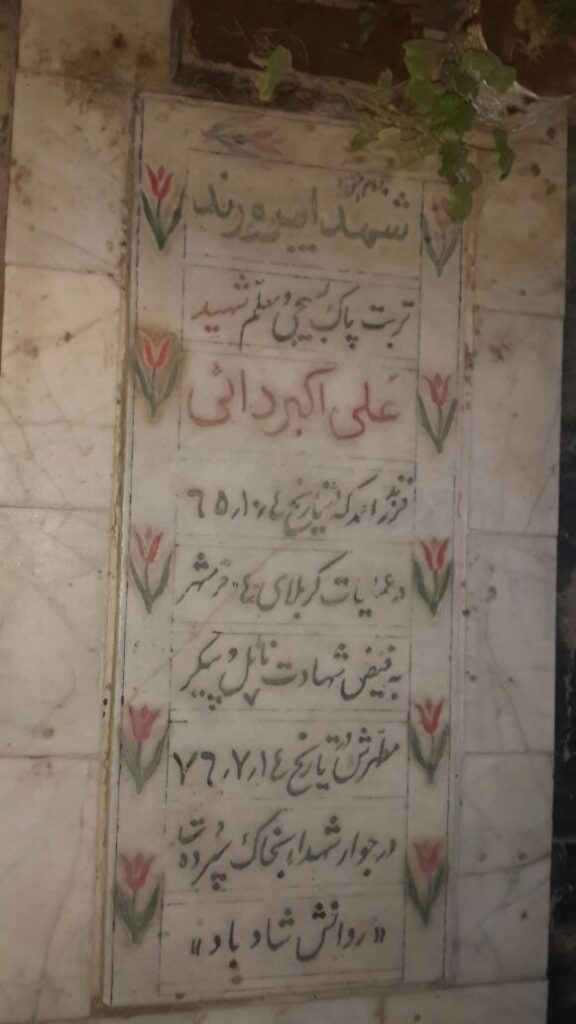 شهدا پیروزند
تربت پاک بسیجی و معلم شهید
علی اکبر دائی
فرزند که در تاریخ ٦٥٫١٠٫٤
در عملیات کربلای ٤- خرمشهر
به فیض شهادت نائل و پیکر
مطهرش در تاریخ ٧٦٫٧٫١٤
در جوار شهداء بخاک سپرده
«روانش شاد باد»